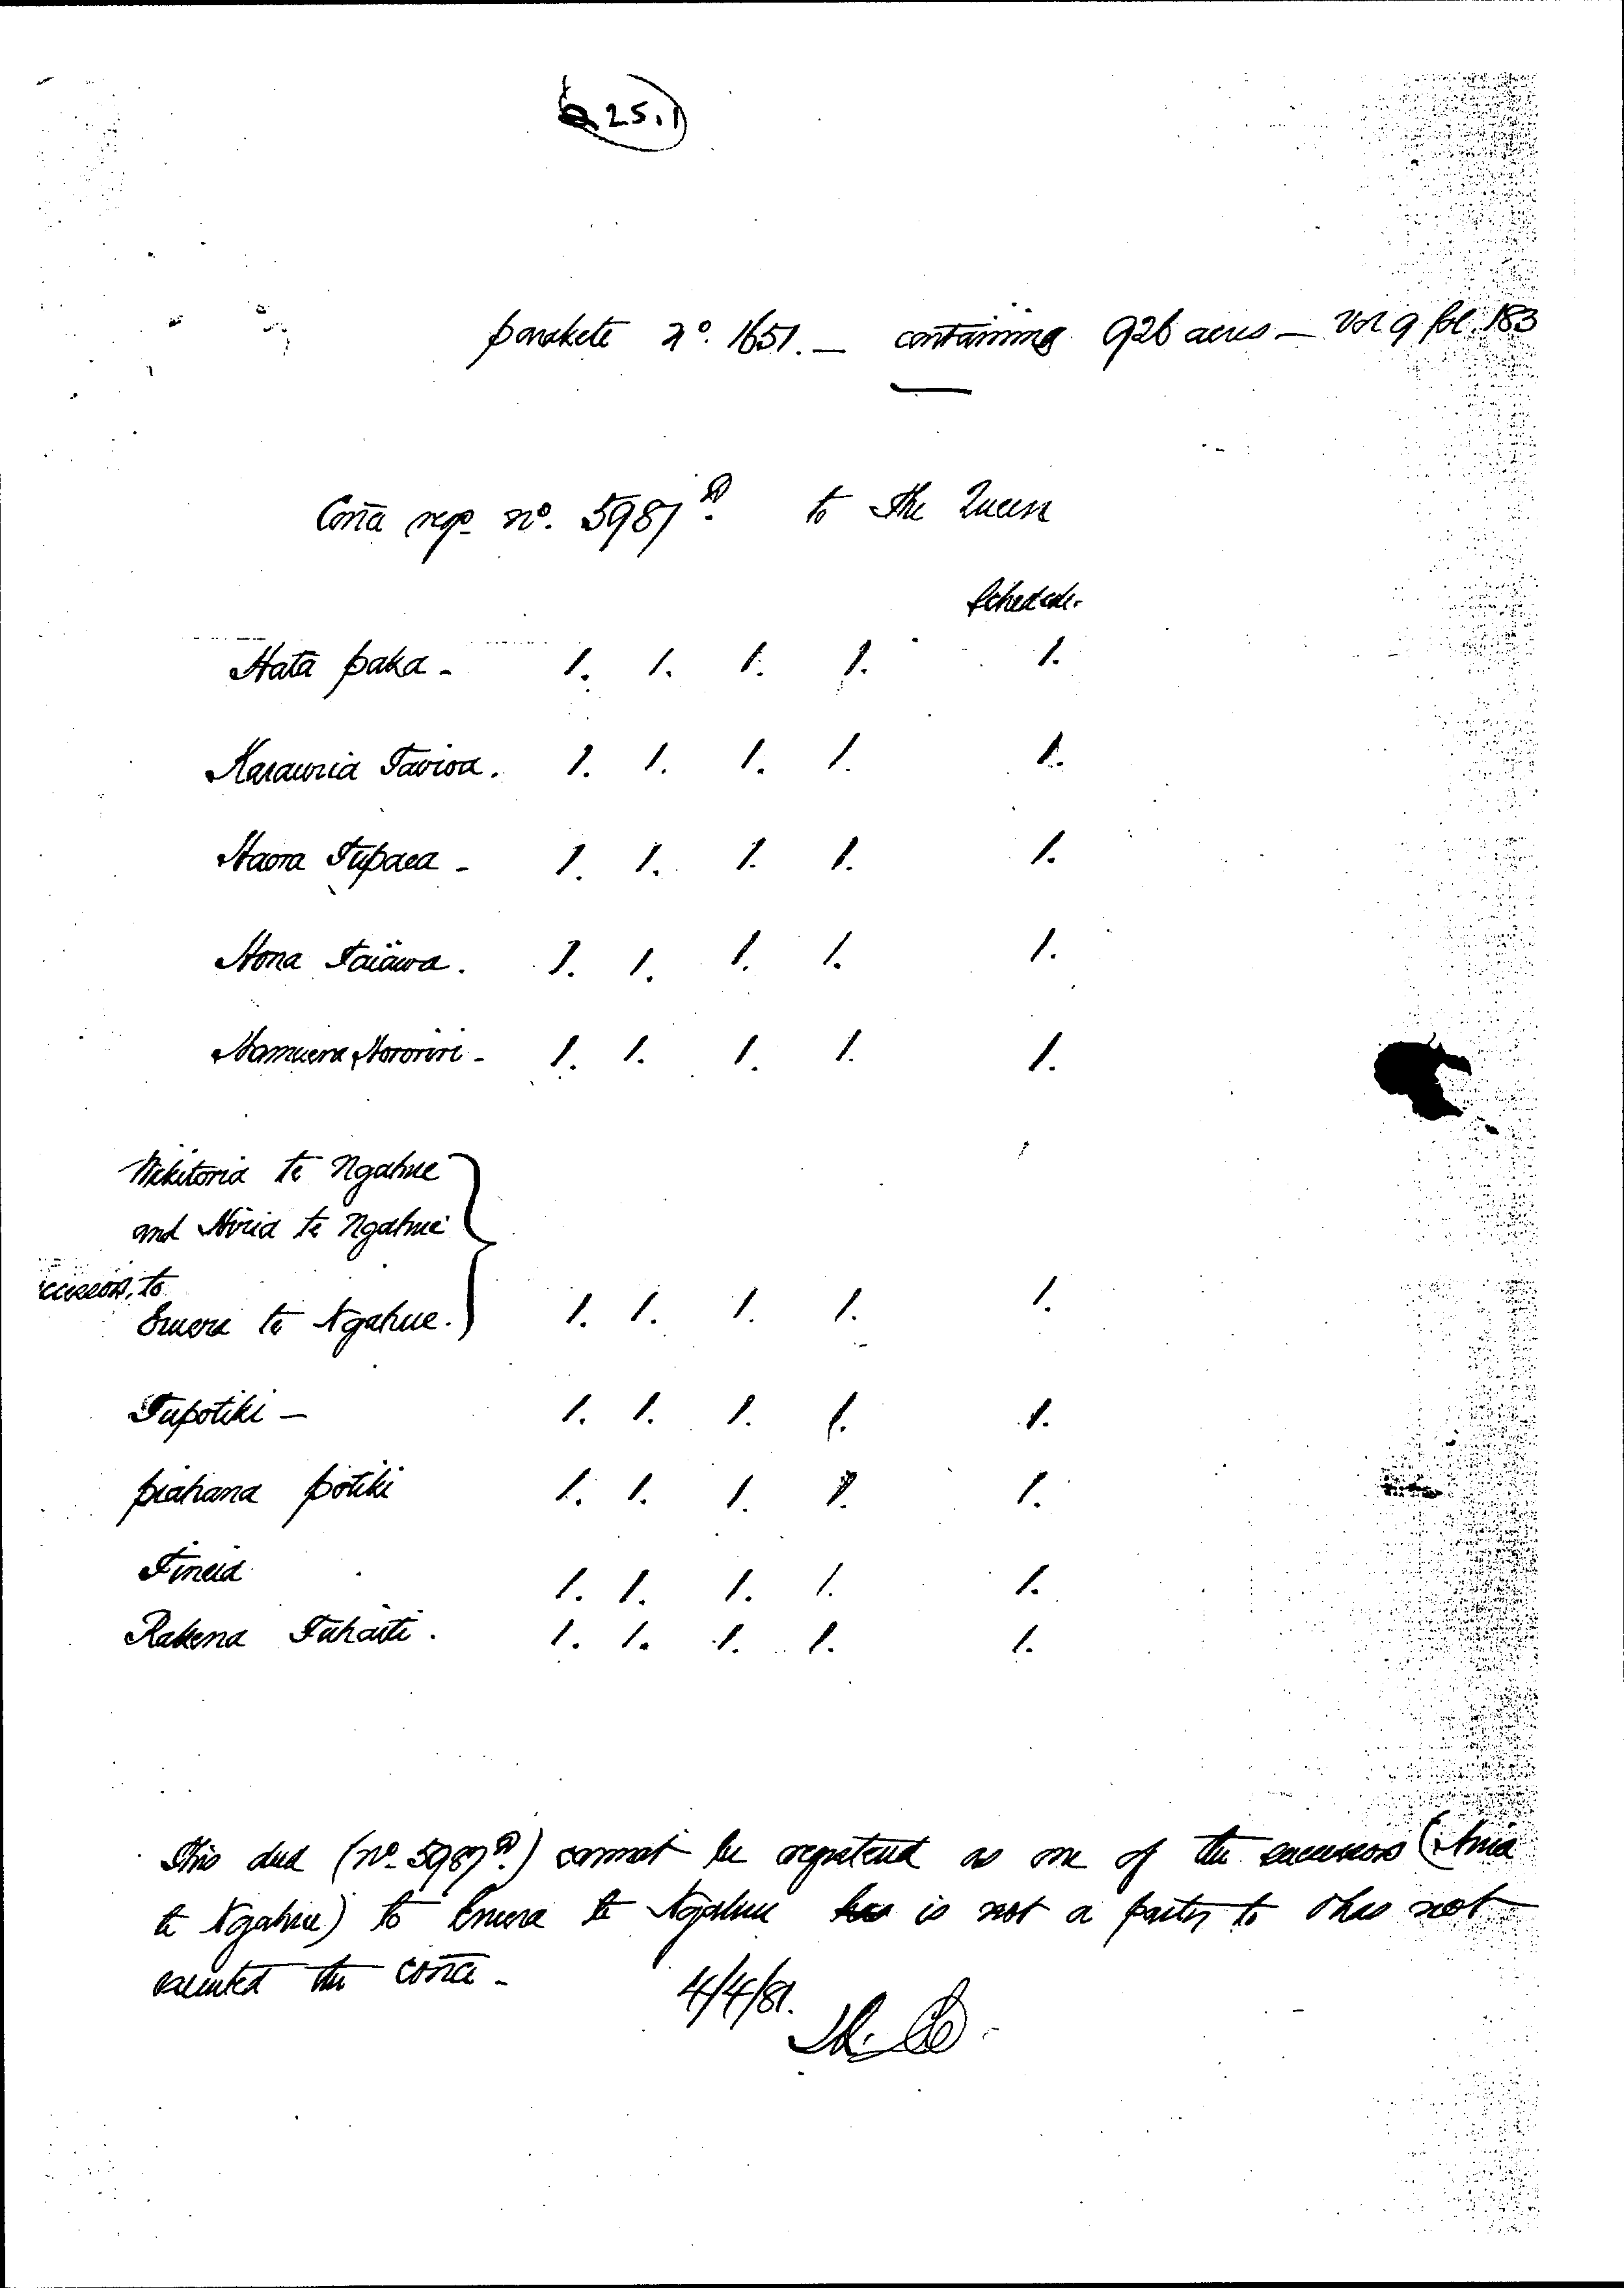 25.1
parakete no. 1651. — containing 926 acres — Vol 9 fol. 183
Conā reg. no. 5987 to The Queen
Schedule.
Hata paka - 1. 1. 1. 1. 1.
Karauria Tawioa. 1. 1. 1. 1. 1.
Haora Tupaea - 1. 1. 1. 1. 1.
Hona Taiawa. 1. 1. 1. 1. 1.
Hamuera Hororiri - 1. 1. 1. 1. 1.
Wikitoria te Ngahue
and Hiria te Ngahue
ccessors to
Eruera te Ngahue. 1. 1. 1. 1. 1.
Tupotiki — 1. 1. 1. 1. 1.
piahana potiki 1. 1. 1. 1. 1.
Tineia 1. 1. 1. 1. 1.
Rakena Tuhaiti. 1. 1. 1. 1. 1.
This deed (no. 5987) cannot be registered as one of the successors (Hiria
te Ngahue) to Eruera te Ngahue is not a party to & has not
executed the conā -
4/4/81.